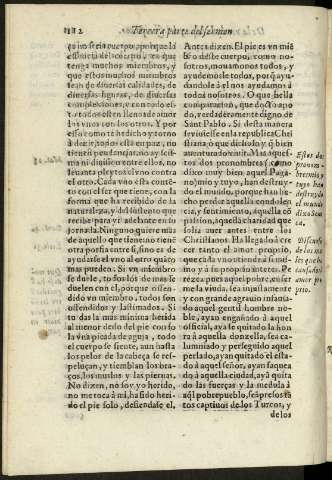 182 Tercera parte del sermon
es no seria cuerpo, porque la
tenga muchos miembros, y
que estos muchos miembros
sean de diuersas calidades, de
diuersas figuras, de diuersas
complexiones, y que con es-
to todos esten llenos de amor
los vnos con los otros. Y por
esso como tè hedicho y torno
à dezir, todos estos estan en
paz, no tienen pendencia ni scis-
ma ni diuision entre ellos, no
leuanta pleyto el vno contra
el otro. Cada vno està conté-
to con el ser que tiene, con la
forma que ha recibido de la
naturaleza, y del sustento que
recibe para su seruicio y su
jornada. Ninguno quiere mas
de aquello que tienen: no tiené
otra porfia entre si, sino es de
ayudarse el vno al otro quāto
mas pueden. Si vn miembro
se duele, todos los de mas se
duelen con el, porque offen-
dido vn miembro, todos son
offendidos y lastimados. Si
to da la mas minima herida
al menor dedo del pie con so
la vna picada de aguja, todo
el cuerpo se siente, aun hasta
los pelos de la cabeça se res-
peluçan, y tiemblan los bra-
ços, los muslos y las piernas.
No dizen, no soy yo herido,
no me toca à mi, ha sido heri-
do el pie solo, defiendase el,
Antes dizen. El pie es vn mié
bro ò dedo de este cuerpo, como
nosotros, mouamonos todos, y
ayudemosle todos, porq̄ ayu-
dando à el nos ayudamos à
todos nosotros. O que amiga
compassion, que docto apo
do, verdaderamente digno de
Sant Pablo. Si desta manera
se viuiesse en la republica Chri
stiana, ò que dichado, y q̄ bien
auenturado seria. Mas aques-
tos dos pronombres (como
dixo muy bien aquel Paga-
no) mio y tuyo, han destruy-
do el mundo, han echado à
perder toda aquella condolen-
cia, y sentimiento, aquella có
passion, aquella charidad que
solia auer antes entre los
Christianos. Ha llegado à cre
cer tanto el amor proprio,
que cada vno atiende à si mis-
mo, y à su proprio interes. Pe
rezca, pues, aquel pobre, eche
se me la viuda, sea injustamente
y con grande agrauio infama-
do aquel gentil hombre no-
ble, ayan engañado à aquel
official, aya se quitado la hon
ra à aquella donzella, sea ca-
lumniado y perseguido aquel
perlado, ayan quitado el esta-
do à aquel señor, ayan saquea
do, à aquella ciudad, aya quita
do las fuerças y la medula à
aql̄ pobre pueblo, seā presos tā
tos captiuos de los Turcos, y
de los
Estos dos
pronom-
bres mio y
tuyo han
destruydo
el mundo
dixo Sene
ca.
Discurso
de los ma-
les que ha
causado el
amor pro-
prio.